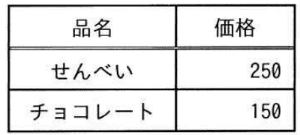 品名 価格
せんべい 250
チョコレート 150